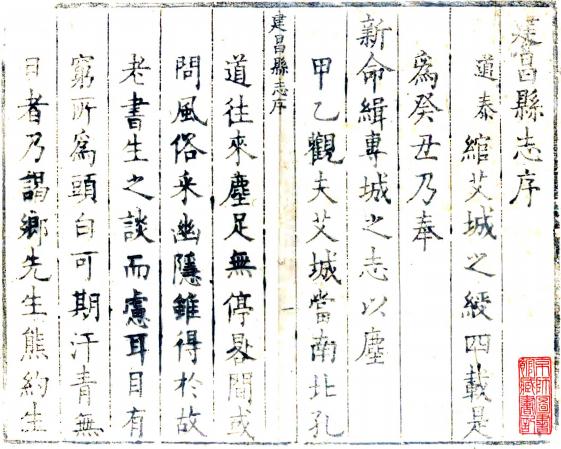 建昌縣志序
道泰綰艾城之綬四載是
為癸丑乃奉
新命緝專城之志以塵
甲乙觀夫艾城當南北孔
建昌縣志序
道往來塵足無停晷間或
問風俗采幽隱雖得於故
老書生之談而慮耳目有
窮所為頭白可期汗青無
日者乃謁鄉先生熊約生